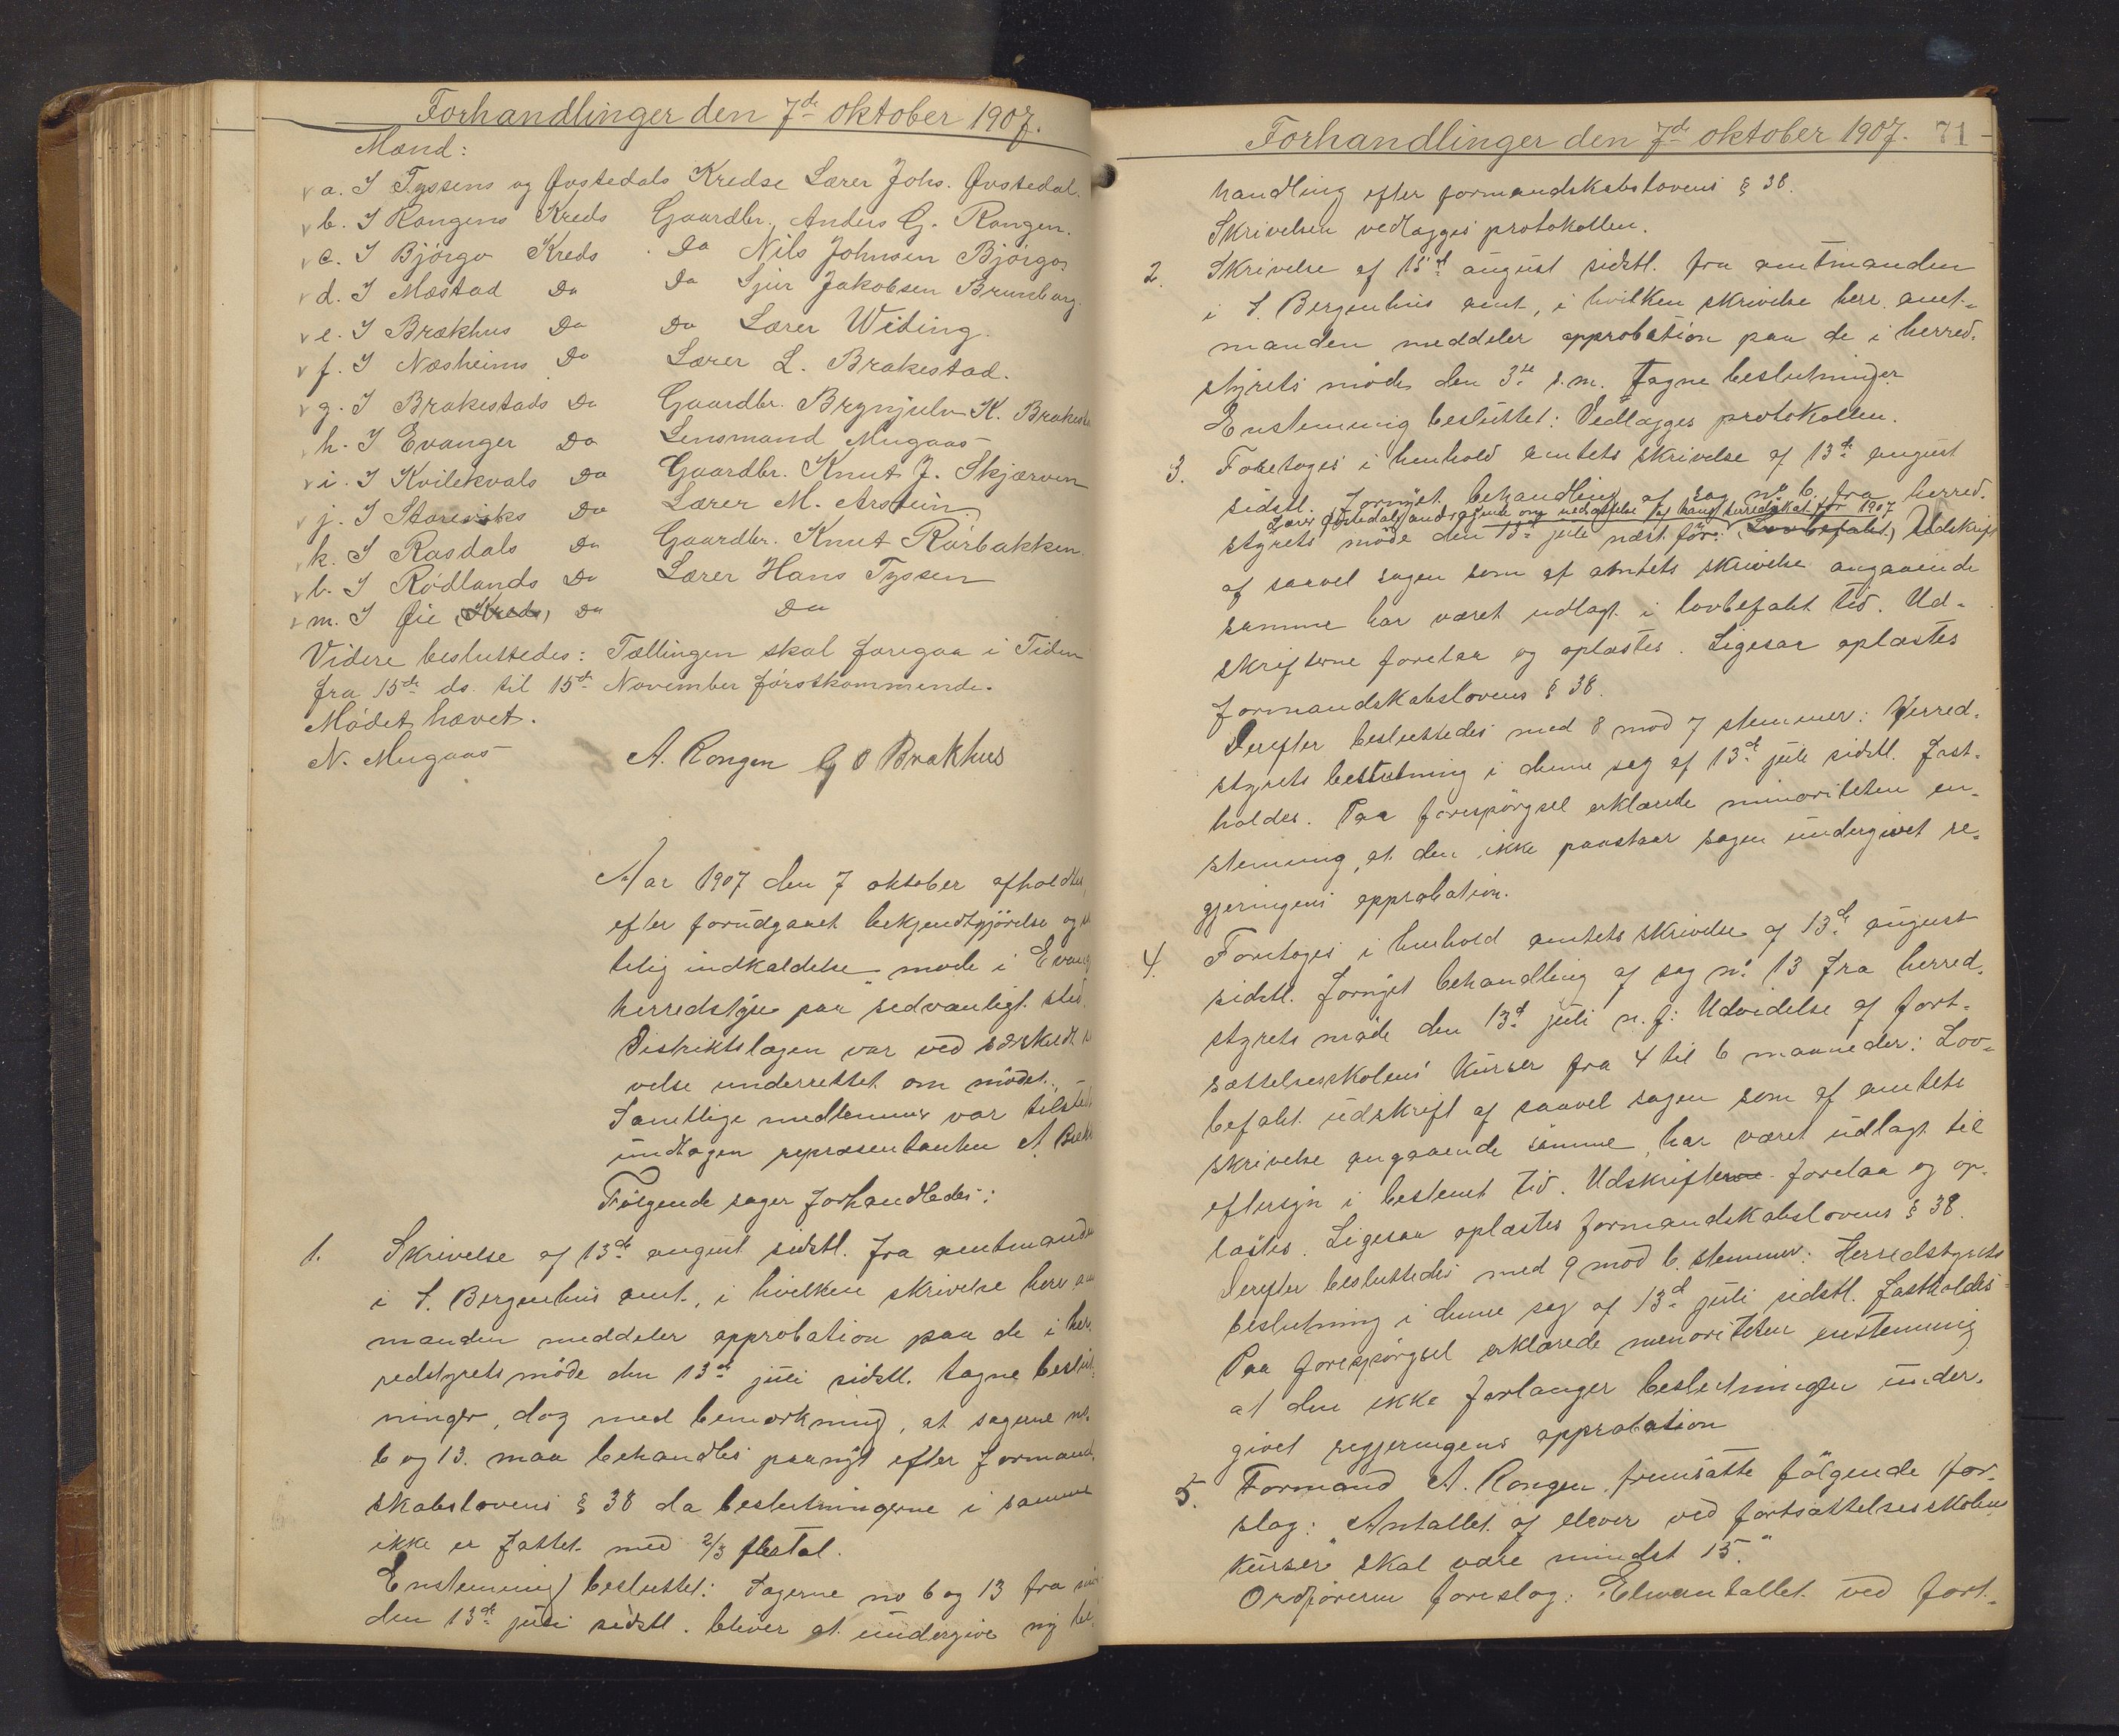 Forhandlinger den 7de oktober 1907.
Mænd:
a. I Tyssens og Øvstedals Kredse Lærer Johs. Øvstedal.
b. I Rongens Kreds Gaardbr. Anders G. Rongen.
c. I Bjørgo Kreds Do Nils Johnsen Bjørgo
d. I Mæstad Do Do Sjur Jakobsen Brunborg.
e. I Brækhus Do Do Lærer Widing.
f. I Næsheims Do Lærer L. Brakestad.
g. I Brakestads Do Gaardbr. Brynjulv K.
h. I Evanger Do Lensmand Mugaas
i. I Kvilekvals Do Gaardbr. Knut J. Skjærven
j. I Do Lærer M. Arstein.
k. I Rasdals Do Gaardbr. Knut Rørbakken
l. I Rødlands Do Lærer Hans Tyssen
m. I Øie (Kreds) Do Do
Videre besluttedes: Tællingen skal foregaa i Tiden
fra 15de ds. til 15de November førstkommende.
Mødet hævet.
N. Mugaas A. Rongen G O Brakhus
Aar 1907 den 7 oktober afholdtes
efter forudgaaet bekjendtgjørelse og
telig indkaldelse møde i
herredstyre paa sedvanligt sted.
Distriktslægen var ved særskilt
velse underrettet om mødet.
Samtlige medlemmer var
undtagen repræsentanten A.
Følgende sager forhandledes:
1. Skrivelse af 13de august sidstl. fra
i S. Bergenhus amt, i hvilken skrivelse herr
manden meddeler approbation paa de i
redstyrets møde den 13de juli sidstl. tagne
ninger, dog med bemærkning, at sagerne
6 og 13. maa behandles paanyt efter formand-
skabslovens § 38 da beslutningerne i samme
ikke er fattet med 2/3 flertal.
Enstemmig besluttet: Sagerne no 6 og 13 fra
den 13de juli sidstl. bliver at undergive ny
Forhandlinger den 7de oktober 1907. 71
handling efter formandskabslovens § 38.
Skrivelsen vedlægges protokollen.
2. Skrivelse af 15de august sidstl. fra amtmanden
i S. Bergenhus amt, i hvilken skrivelse herr amt-
manden meddeler approbation paa de i herred-
styrets møde den 3de s.m. tagne beslutninger
Enstemmig besluttet: Vedlægges protokollen.
3. Foretoges i henhold amtets skrivelse af 13de august
sidstl. fornyet behandling af sag no 6 fra herred-
Lærer Øvstedals andragende om nedsættelse af hans herredsskat for 1907
styrets møde den 13de juli næst før: (Lovbefalet) Udskrift
af saavel sagen som af amtets skrivelse angaaende
samme har været udlagt i lovbefalt tid. Ud-
skrifterne forelaa og oplæstes. Ligesaa oplæstes
formandskabslovens § 38.
Derefter besluttedes med 8 mod 7 stemmer: Herred-
styrets beslutning i denne sag af 13de juli sidstl. fast-
holdes. Paa forespørgsel erklærede minoriteten en-
stemmig, at den ikke paastaar sagen undergivet re-
gjeringens approbation.
4. Foretoges i henhold amtets skrivelse af 13de august
sidstl. fornyet behandling af sag no 13 fra herred-
styrets møde den 13de juli n. f: Udvidelse af fort-
sættelsesskolens kurser fra 4 til 6 maaneder: Lov-
befalt udskrift af saavel sagen som af amtets
skrivelse angaaende samme, har været udlagt til
eftersyn i bestemt tid. Udskrifterne forelaa og op-
læstes. Ligesaa oplæstes formandskabslovens § 38.
Derefter besluttedes med 9 mod 6 stemmer: Herredstyrets
beslutning i denne sag af 13de juli sidstl. fastholdes
Paa forespørgsel erklærede menoriteten enstemmig
at den ikke forlanger beslutningen under-
givet regjeringens approbation
5. Formand A. Rongen fremsatte følgende for-
slag: "Antallet af elever ved fortsættelsesskolens
kurser skal være mindst 15."
Ordføreren foreslog: Elevantallet ved fort-